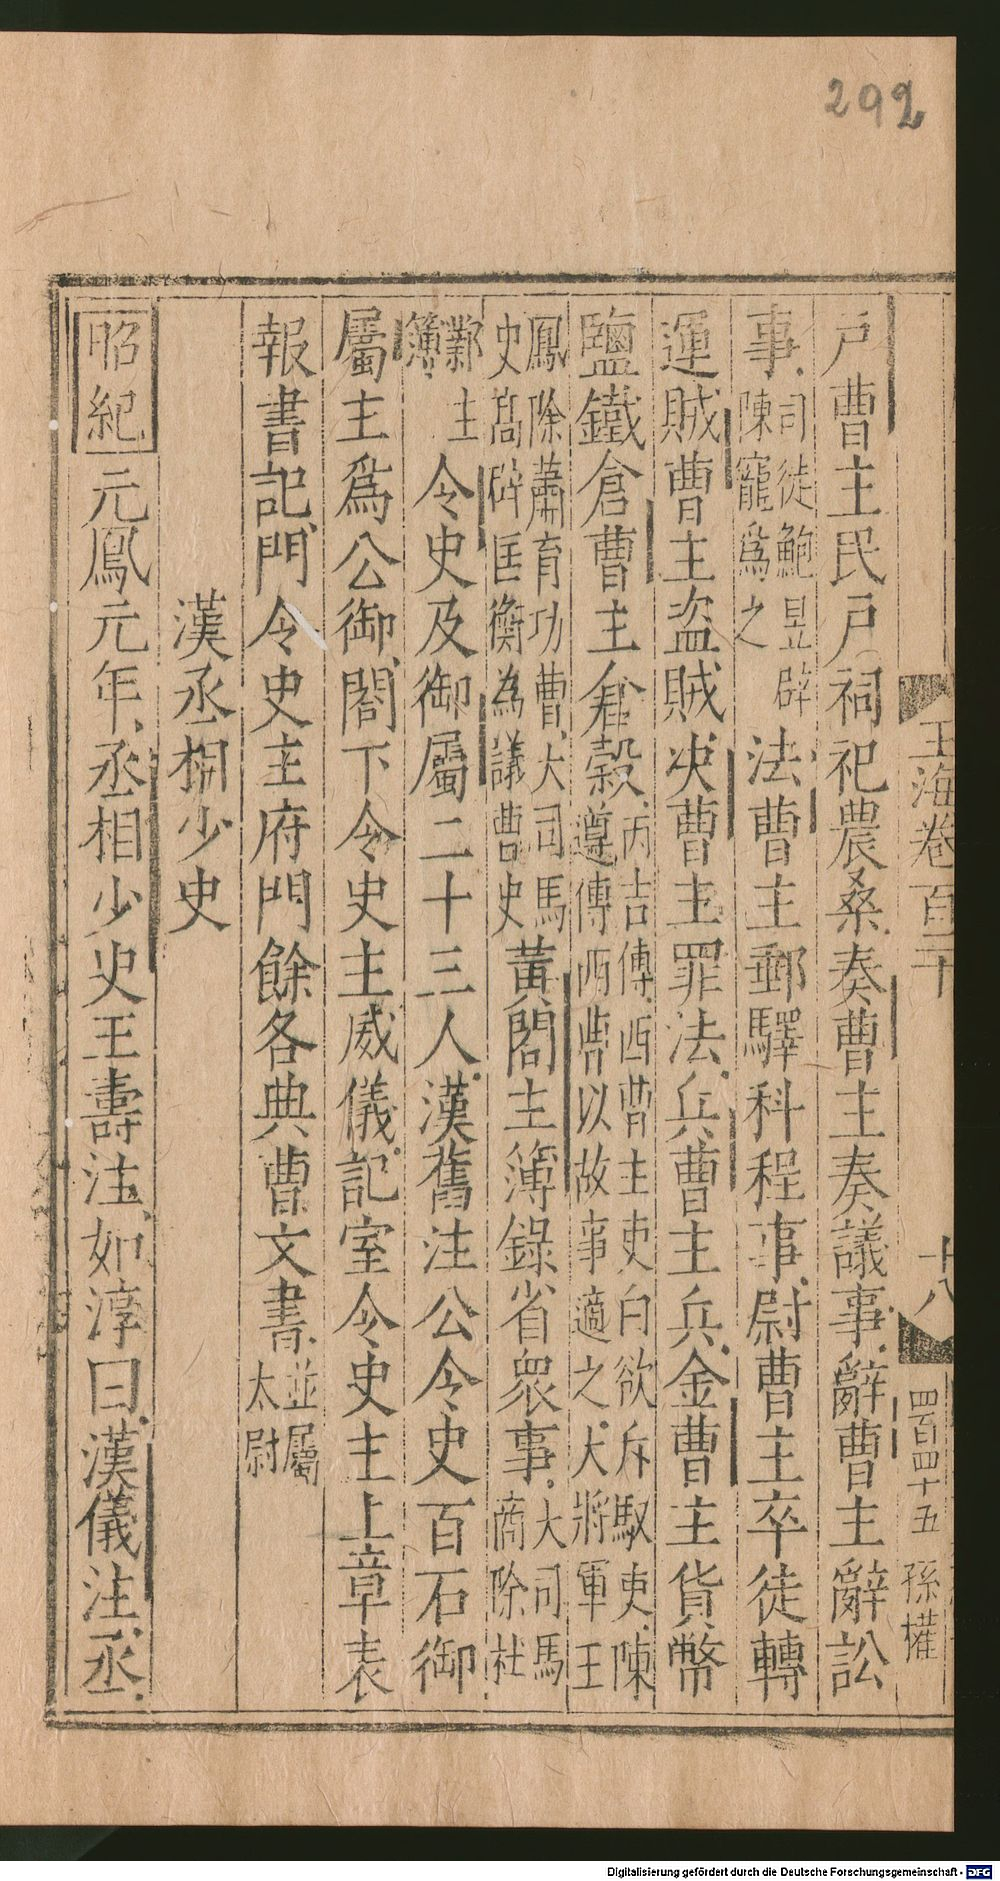 292
玉海卷百二十
十八
四百四十五 孫權
戶曹主民戶祠祀農桑奏曹主奏議事辭曹主辭訟
事司徒鮑昱辟陳寵爲之法曹主郵驛科程事尉曹主卒徒轉
運賊曹主盜賊決曹主罪法兵曹主兵金曹主貨幣
鹽鐵倉曹主倉穀丙吉傳西曹主吏白欲斥馭吏陳遵傳西曹以故事適之大將軍王
鳳除蕭育功曹大司馬史高辟匡衡為議曹史黃閤主簿錄省衆事大司馬商除杜
鄴主簿令史及御屬二十三人漢舊注公令史百石御
屬主爲公御閤下令史主威儀記室令史主上章表
報書記門令史主府門餘各典曹文書並屬太尉
漢丞相少史
昭紀元鳳元年丞相少史王壽注如淳曰漢儀注丞
Digitalisierung gefördert durch die Deutsche Forschungsgemeinschaft - DFG